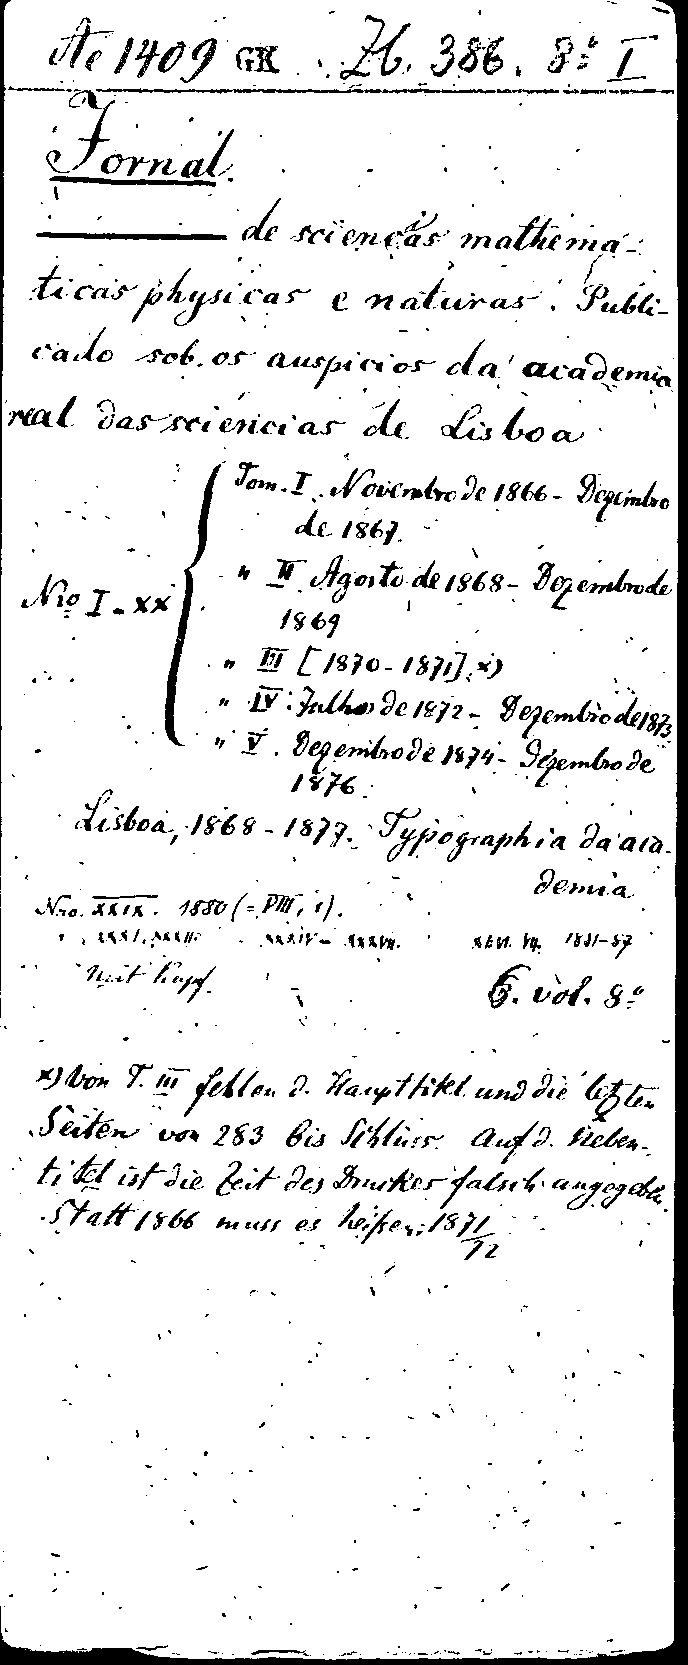 Ae 1409 GK . Zb. 386. 8º I
Jornal.
——— de sciencias mathema-
ticas physicas e naturas. Publi-
cado sob os auspicios da academia
real das sciencias de Lisboa
Tom. I. Novembro de 1866 - Dezembro
de 1867.
" II Agosto de 1868 - Dezembro de
1869
Nro I - XX
" III [1870 - 1871] x)
" IV. Julho de 1872 - Dezembro de 1873
" V. Dezembro de 1874 - Dezembro de
1876.
Lisboa, 1868 - 1877. Typographia da aca-
demia
Nro. XXIX. 1880 (= VIII, 1).
" XXXI. XXXII. XXXIV - XXXVII. 1881-87
mit Kupf.
6. vol. 8º
x) Von T. III fehlen d. Haupttitel und die letzten
Seiten von 283 bis Schluss. Auf d. Neben-
titel ist die Zeit des Druckes falsch angegeben.
Statt 1866 muss es heißen: 1871/72